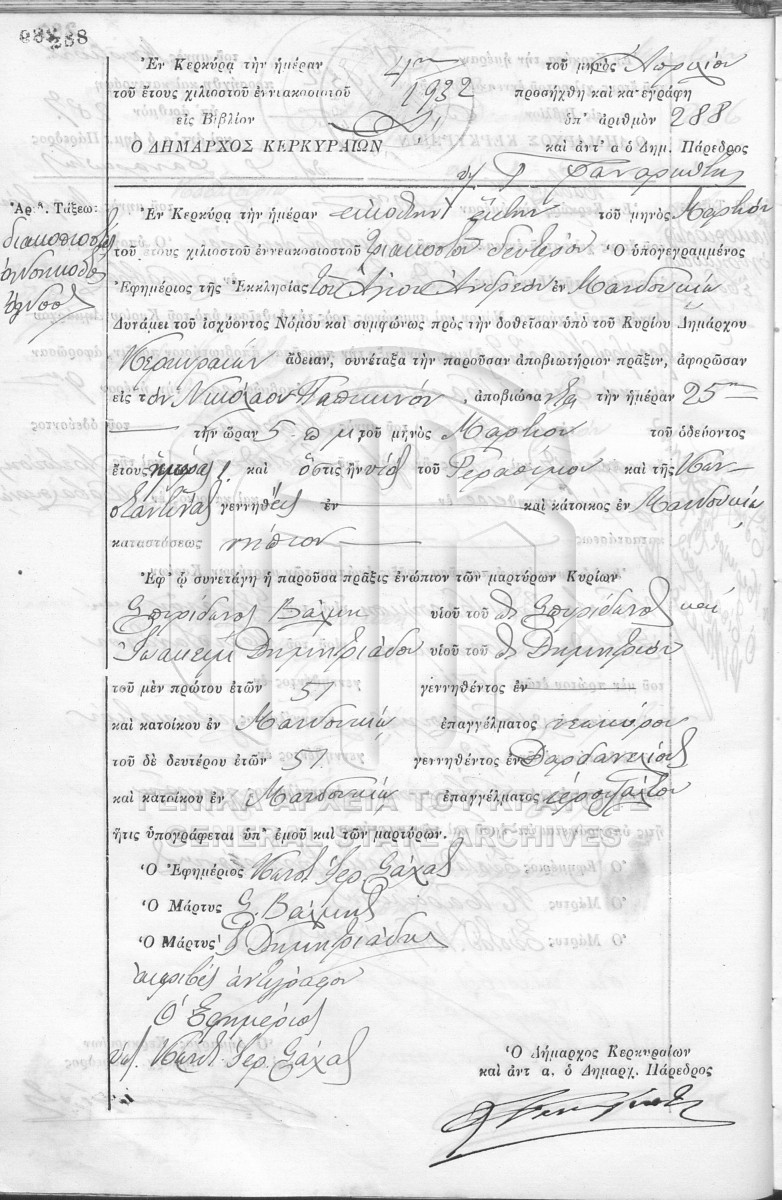 288
Ἐν Κερκύρᾳ τὴν ἡμέραν 4ην τοῦ μηνὸς Ἀπριλίου
τοῦ ἔτους χιλιοστοῦ ἐννιακοσιοστοῦ 1932 προσήχθη καὶ κατεγράφη
εἰς Βιβλίον ὑπ' ἀριθμὸν 288
Ὁ ΔΗΜΑΡΧΟΣ ΚΕΡΚΥΡΑΙΩΝ καὶ ἀντ' α ὁ Δημ. Πάρεδρος
Ἀρ. Τάξεω:
διακοσιοστὸς
ὀγδοηκοστὸς
ὄγδοος
Ἐν Κερκύρᾳ τὴν ἡμέραν εἰκοστὴν ἕκτην τοῦ μηνὸς Μαρτίου
τοῦ ἔτους χιλιοστοῦ ἐννεακοσιοστοῦ τριακοστοῦ δευτέρου Ὁ ὑπογεγραμμένος
Ἐφημέριος τῆς Ἐκκλησίας τοῦ Ἁγίου Ἀνδρέου ἐν Μανδουκίῳ
Δυνάμει τοῦ ἰσχύοντος Νόμου καὶ συμφώνως πρὸς τὴν δοθεῖσαν ὑπὸ τοῦ Κυρίου Δημάρχου
Κερκυραίων ἄδειαν, συνέταξα τὴν παροῦσαν ἀποβιωτήριον πρᾶξιν, ἀφορῶσαν
εἰς τὸν Νικόλαον , ἀποβιώσαντα τὴν ἡμέραν 25ην
τὴν ὥραν 5 π μ τοῦ μηνὸς Μαρτίου τοῦ ὁδεύοντος
ἔτους ἡμέρας 1 καὶ ὅστις ἦν υἱὸς τοῦ Γερασίμου καὶ τῆς Κων
σταντίνας γεννηθεὶς ἐν καὶ κάτοικος ἐν Μανδουκίῳ
καταστάσεως νήπιον
Ἐφ' ᾧ συνετάγη ἡ παροῦσα πρᾶξις ἐνώπιον τῶν μαρτύρων Κυρίων
Σπυρίδωνος Βάλμη υἱοῦ τοῦ Σπυρίδωνος καὶ
Ἰωακεὶμ Δημητριάδου υἱοῦ τοῦ Δημητρίου
τοῦ μὲν πρώτου ἐτῶν 51 γεννηθέντος ἐν
καὶ κατοίκου ἐν Μανδουκίῳ ἐπαγγέλματος νεωκόρου
τοῦ δὲ δευτέρου ἐτῶν 51 γεννηθέντος ἐν Δαρδανελίοις
καὶ κατοίκου ἐν Μανδουκίῳ ἐπαγγέλματος ἱεροψάλτου
ΓΕΝΙΚΑ ΑΡΧΕΙΑ ΤΟΥ ΚΡΑΤΟΥΣ
ἥτις ὑπογράφεται ὑπ' ἐμοῦ καὶ τῶν μαρτύρων.
GENERAL STATE ARCHIVES
Ὁ Ἐφημέριος Κωνστ Ἱερ. Σάχας
Ὁ Μάρτυς Σ. Βάλμης
Ὁ Μάρτυς Ἰ Δημητριάδης
ἀκριβὲς ἀντίγραφον
Ὁ Ἐφημέριος
Κωνστ Ἱερ. Σάχας
Ὁ Δήμαρχος Κερκυραίων
καὶ ἀντ α. ὁ Δημαρχ. Πάρεδρος